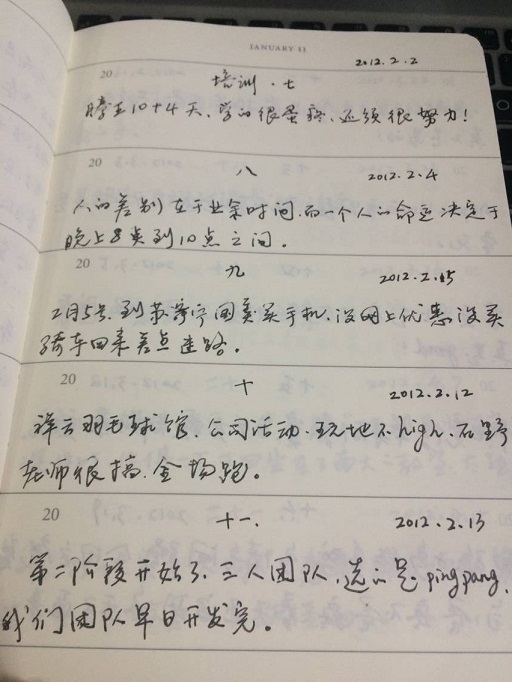 JANUARY 11
2012.2.2
20 培训·七
腾玉10+4天,学的很蛋疼,还须很努力!
20 八 2012.2.4
人的差别在于业余时间,而一个人的命运决定于
晚上8点到10点之间。
20 九 2012.2.15
2月5号,到苏宁国美买手机,没网上优惠没买
骑车回来差点迷路。
20 十 2012.2.12
祥云羽毛球馆,公司活动,玩地不high,石野
老师很搞,全场跑。
20 十一. 2012.2.13
第二阶段开始了,三人团队,选的是pingpang,
我们团队早日开发完。